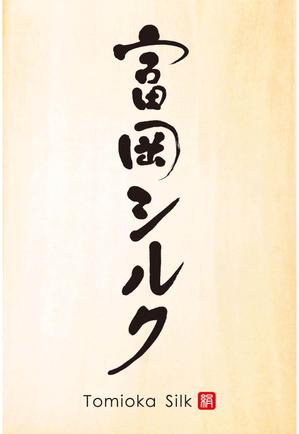 富岡シルク
Tomioka Silk 絹